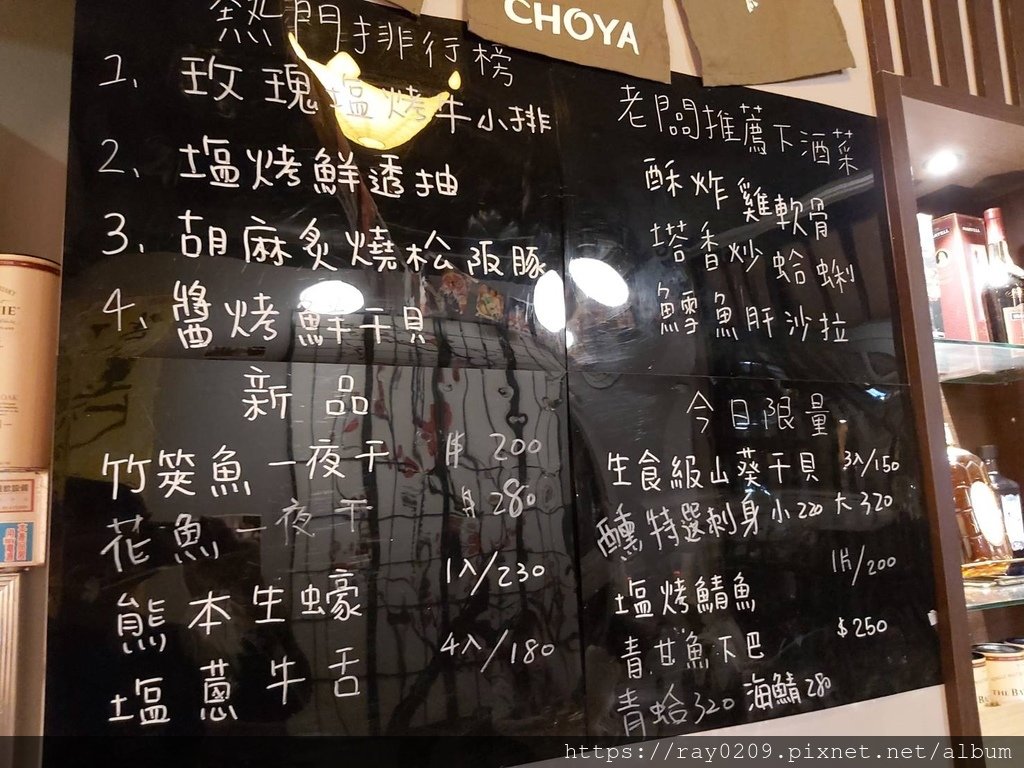 CHOYA
熱門排行榜
1、玫瑰塩烤牛小排
2、塩烤鮮透抽
3、胡麻炙燒松阪豚
4、醬烤鮮干貝
老闆推薦下酒菜
酥炸雞軟骨
塔香炒蛤蜊
鱈魚肝沙拉
新品
竹筴魚一夜干 $200
花魚一夜干 $280
熊本生蠔 1入/230
塩蔥牛舌 4入/180
今日限量
生食級山葵干貝 3入/150
醺特選刺身 小220 大320
塩烤鯖魚 1片/200
青甘魚下巴 $250
青蛤320 海鯖280
https://ray0209.pixnet.net/album